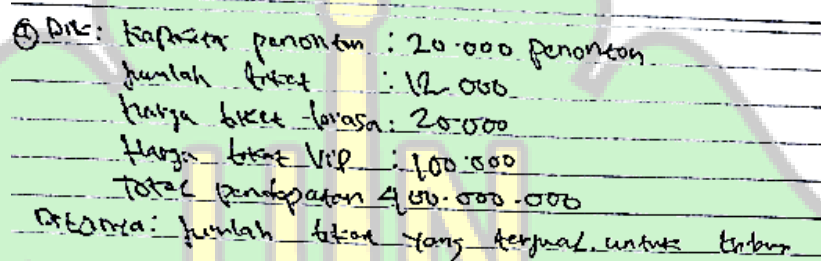 ① Dik: Kapasitas penonton : 20.000 penonton
Jumlah tiket : 12.000
Harga tiket biasa : 20.000
Harga tiket VIP : 100.000
Total pendapatan 400.000.000
Ditanya: Jumlah tiket yang terjual untuk tribun